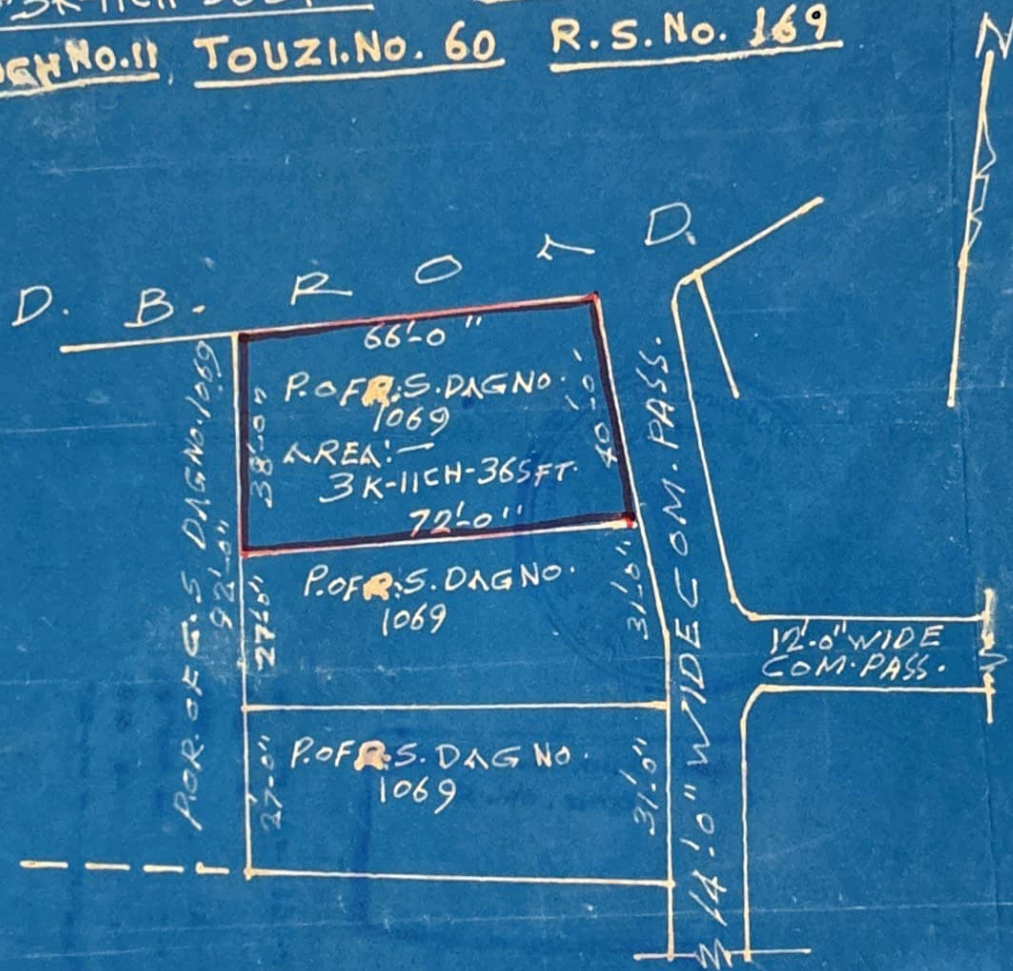 No.11, TOUZI.No. 60 R.S.No. 169
N
D. B. ROAD.
66'-0"
P.OF R.S.DAG NO.
1069
AREA:-
3K-11CH-36SFT.
72'-0"
38'-0"
40'-0"
POR.OF C.S DAG No.1069
92'-0"
P.OF R.S.DAG NO.
1069
27'-0"
31'-0"
P.OF R.S.DAG NO.
1069
27'-0"
31'-0"
14'-0" WIDE COM.PASS.
12'-0" WIDE
COM.PASS.